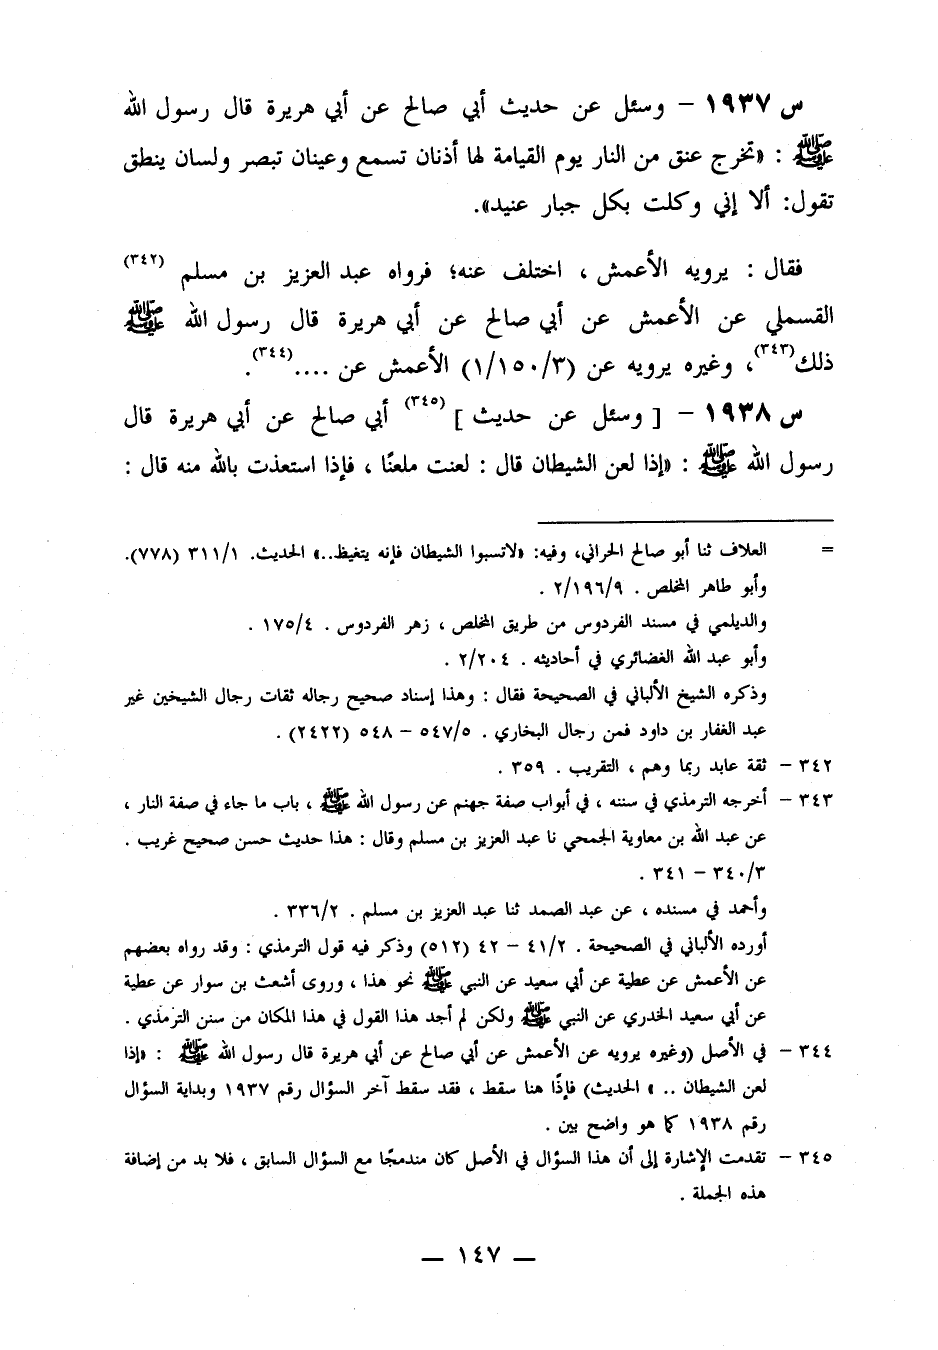 س ١٩٣٧ – وسئل عن حديث أبي صالح عن أبي هريرة قال رسول الله
ﷺ : «تخرج عنق من النار يوم القيامة لها أذنان تسمع وعينان تبصر ولسان ينطق
تقول: ألا إني وكلت بكل جبار عنيد».
فقال : يرويه الأعمش ، اختلف عنه؛ فرواه عبد العزيز بن مسلم (٣٤٢)
القسملي عن الأعمش عن أبي صالح عن أبي هريرة قال رسول الله ﷺ
ذلك(٣٤٣)، وغيره يرويه عن (١/١٥٠/٣) الأعمش عن ....(٣٤٤).
س ١٩٣٨ – [ وسئل عن حديث ](٣٤٥) أبي صالح عن أبي هريرة قال
رسول الله ﷺ : «إذا لعن الشيطان قال : لعنت ملعنًا ، فإذا استعذت بالله منه قال :
= العلاف ثنا أبو صالح الحراني، وفيه: «لاتسبوا الشيطان فإنه يتغيظ..» الحديث. ٣١١/١ (٧٧٨).
وأبو طاهر المخلص . ٢/١٩٦/٩ .
والديلمي في مسند الفردوس من طريق المخلص ، زهر الفردوس . ١٧٥/٤ .
وأبو عبد الله الغضائري في أحاديثه . ٢/٢٠٤ .
وذكره الشيخ الألباني في الصحيحة فقال : وهذا إسناد صحيح رجاله ثقات رجال الشيخين غير
عبد الغفار بن داود فمن رجال البخاري . ٥٤٧/٥ – ٥٤٨ (٢٤٢٢) .
٣٤٢ – ثقة عابد ربما وهم ، التقريب . ٣٥٩ .
٣٤٣ – أخرجه الترمذي في سننه ، في أبواب صفة جهنم عن رسول الله ﷺ ، باب ما جاء في صفة النار ،
عن عبد الله بن معاوية الجمحي نا عبد العزيز بن مسلم وقال : هذا حديث حسن صحيح غريب .
٣٤٠/٣ – ٣٤١ .
وأحمد في مسنده ، عن عبد الصمد ثنا عبد العزيز بن مسلم . ٣٣٦/٢ .
أورده الألباني في الصحيحة . ٤١/٢ – ٤٢ (٥١٢) وذكر فيه قول الترمذي : وقد رواه بعضهم
عن الأعمش عن عطية عن أبي سعيد عن النبي ﷺ نحو هذا ، وروى أشعث بن سوار عن عطية
عن أبي سعيد الخدري عن النبي ﷺ ولكن لم أجد هذا القول في هذا المكان من سنن الترمذي .
٣٤٤ – في الأصل (وغيره يرويه عن الأعمش عن أبي صالح عن أبي هريرة قال رسول الله ﷺ : «إذا
لعن الشيطان .. » الحديث) فإذًا هنا سقط ، فقد سقط آخر السؤال رقم ١٩٣٧ وبداية السؤال
رقم ١٩٣٨ كما هو واضح بين .
٣٤٥ – تقدمت الإشارة إلى أن هذا السؤال في الأصل كان مندمجًا مع السؤال السابق ، فلا بد من إضافة
هذه الجملة .
— ١٤٧ —